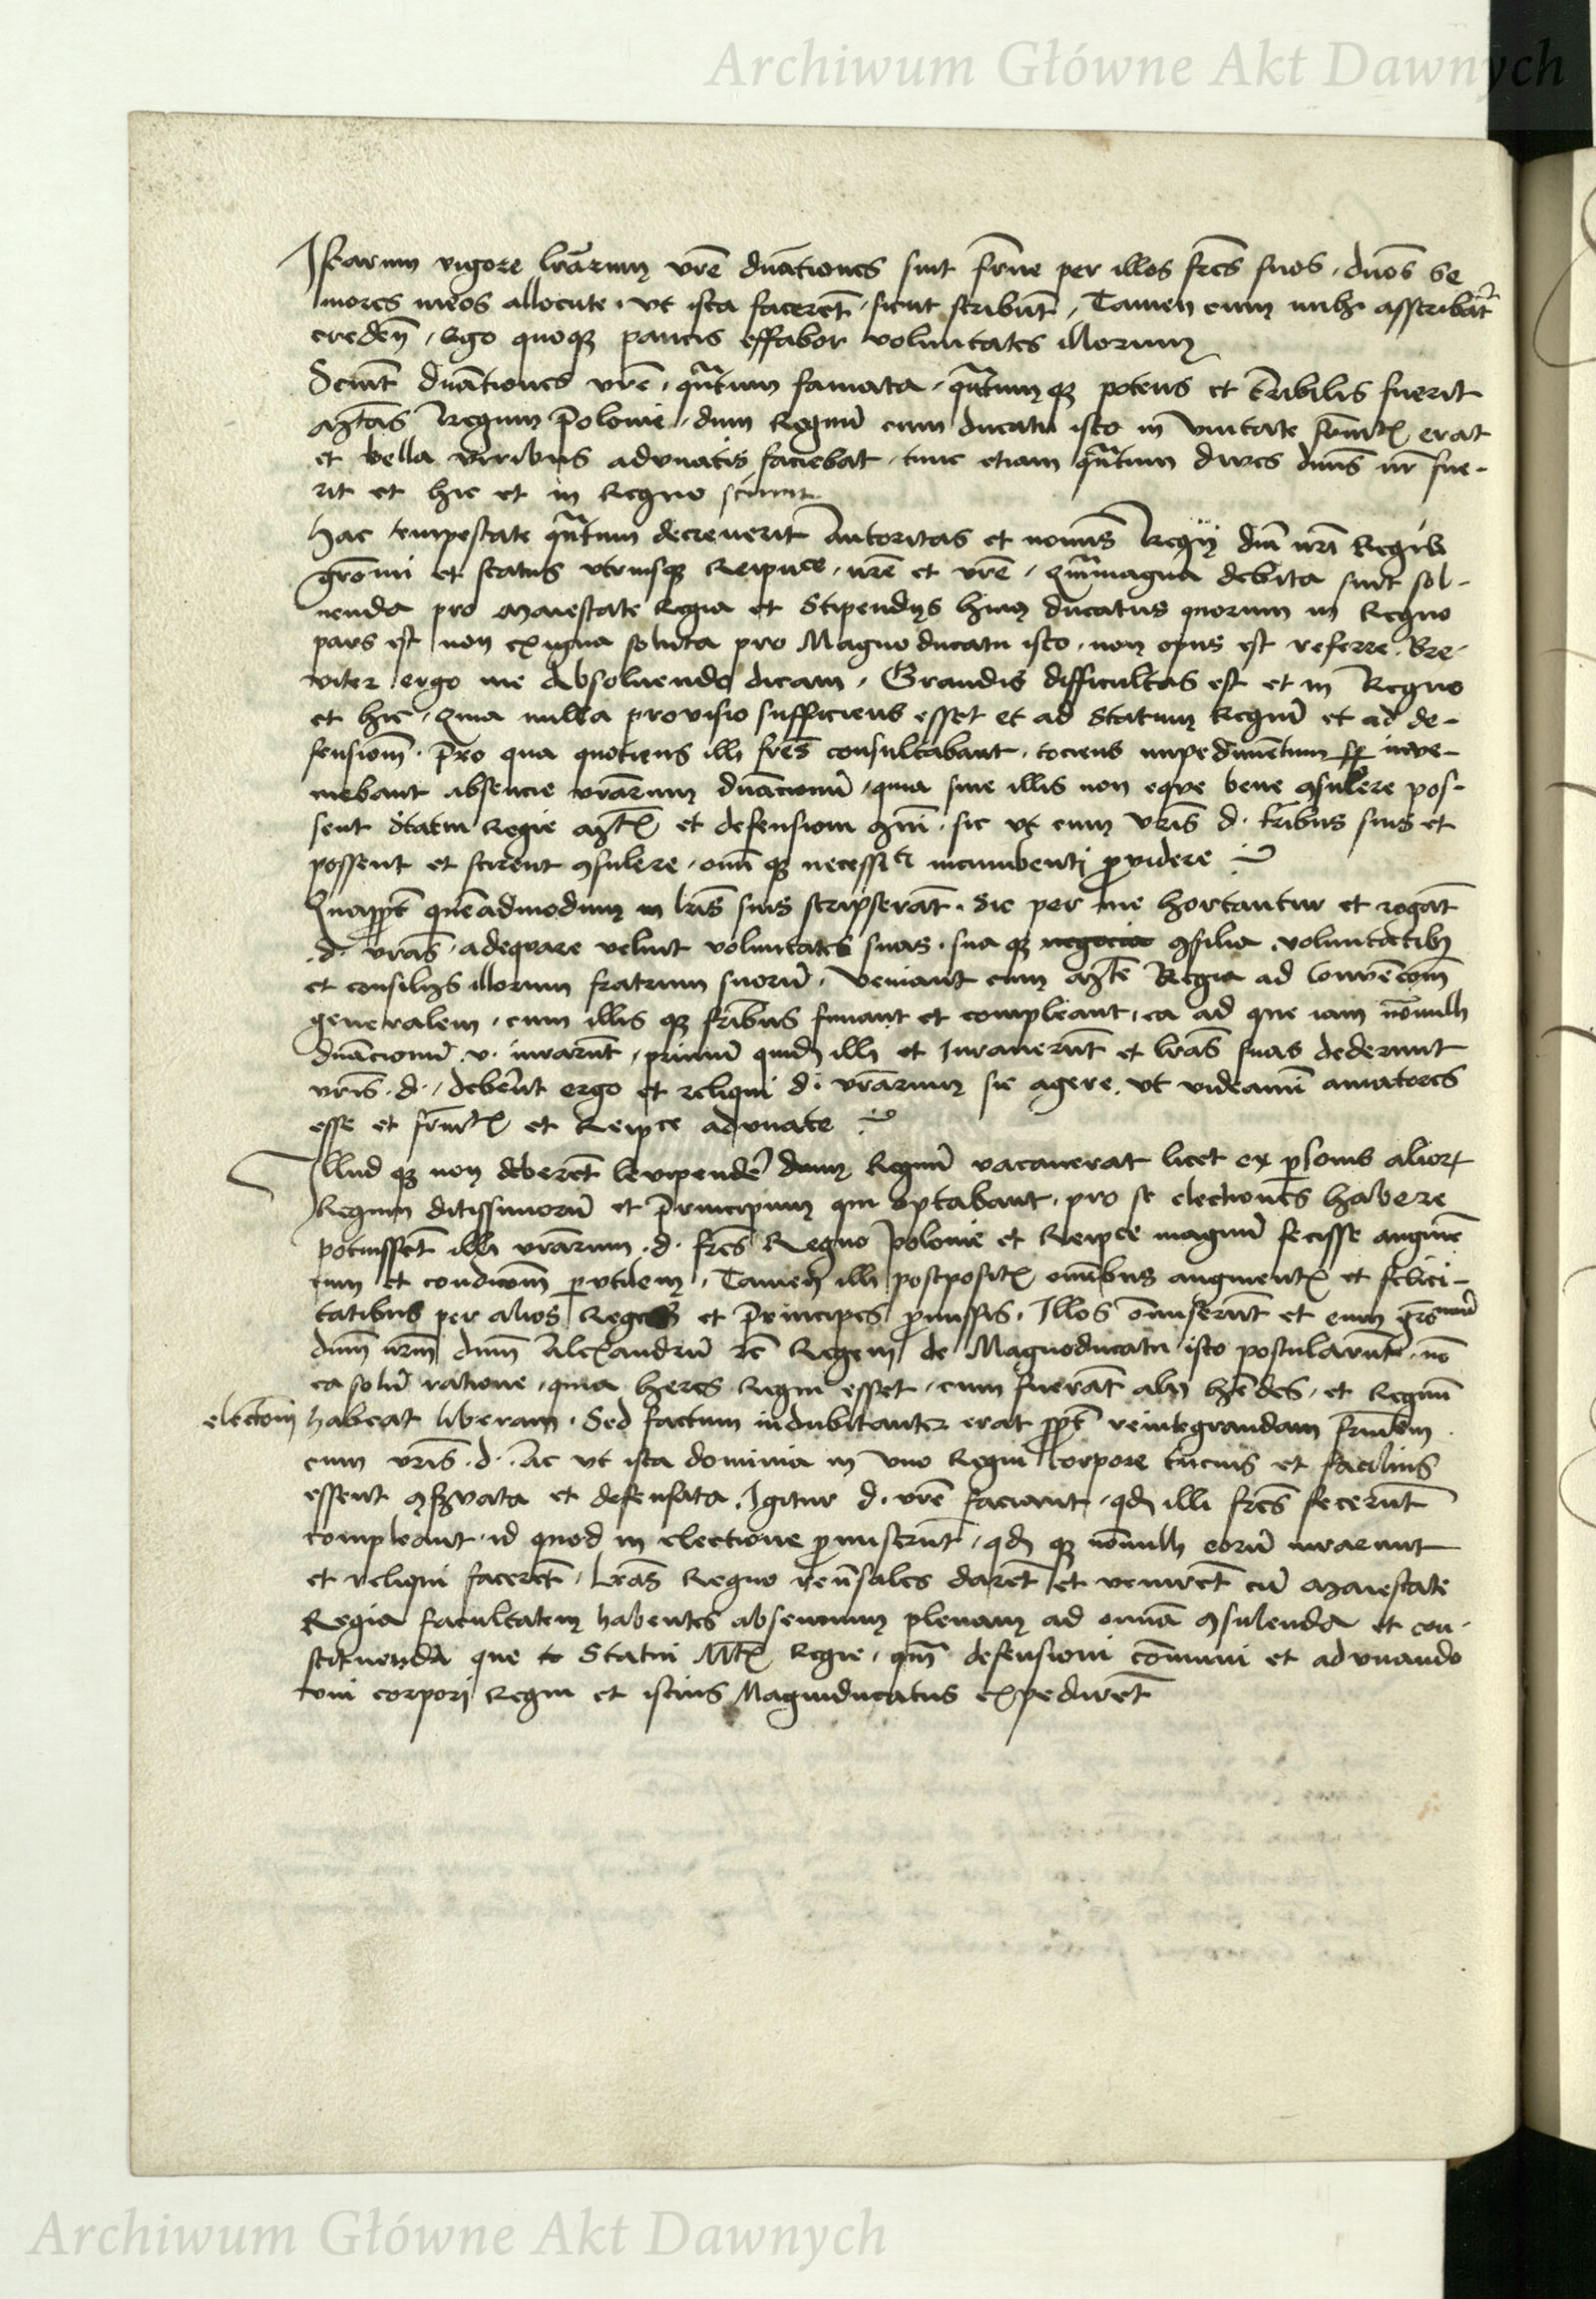 Archiwum Główne Akt Dawnych
Istarum vigore lrarum vre dnationes sint frne per illos fres suos, dnos Se
niores meos allocute, vt ista facerent, sicut scribunt, Tamen cum mihi asscribatr
creden, Ego quoque paucis effabor voluntates illorum
Sciunt dnationes vre, quantum famata, quantumque potens et tribilis fuerit
Mtas Regum Polonie, dum Regnu cum ducatu isto in vnitate frnitatis erat
et bella viribus advnatis faciebat, tunc etiam quantum dives dnus nr fue-
rit et hic et in Regno sciunt
Hac tempestate quantum decreverit Autoritas et nomen Regij dni nri Regis
grosmi et status vtriusque Reipuce, nre et vre, Quammagna debita sunt sol-
uenda pro Maiestate Regia et Stipendijs huius ducatus quorum in Regno
pars est non exigua soluta pro Magnoducatu isto, non opus est referre. Bre-
viter ergo me absoluendo dicam, Grandis difficultas est et in Regno
et hic, Quia nulla provisio sufficiens esset et ad Statum Regni et ad de-
fensiom. Pro qua quotiens illi fres consultabant, tociens impedimentum semper inve-
niebant absencie vrarum dnacionu, quia sine illis non eque bene consulere pos-
sent statui Regie Mtis et defensioni coni, sic vt cum vris d. fribus suis et
possent et scirent consulere, omni que necessiti incumbenti providere
Quapropt quemadmodum in lris suis scripserant. Sic per me hortantur et rogant
.d. vras, adequare velint voluntates suas, sua que negocia consilia voluntatibus
et consilijs illorum fratrum suoru, Veniant cum Mte Regia ad Convencom
generalem, cum illis que fribus finiant et compleant, ea ad que iam nonnulli
dnacionu v. iurarunt, primu quidem illi et Iuraverunt et lras suas dederunt
vris .d., debent ergo et reliqui d. vrarum sic agere, vt videamur amatores
esse et frnitatis et Reipce advnate
Illud que non deberet levipendi dum Regnu vacaverat licet ex personis aliorum
Regum ditissimoru et Principum qui optabant, pro se electiones habere
potuissent illi vrarum .d. fres Regno Polonie et Reipce magnu fecisse augmen
tum et condicom perutilem, Tamen illi postpositis omnibus augmentis et felici-
tatibus per alios Reges et Principes promissis, Illos omiserunt et eum grosmu
dnm nrm dnm Alexandru in Regem de Magnoducatu isto postularunt, no
ea solu ratione, quia heres Regni esset, cum fuerant alij hredes, et Regnu
electiom habeat liberam. Sed factum indubitanter erat propt reintegrandam frnitem
cum vris .d. Ac vt ista dominia in vno Regni corpore tucius et facilius
essent conservata et defensata. Igitur d. vre faciant, quod illi fres fecerunt
compleant id quod in electione promiserunt, quod que nonnulli eoru iurarunt
et reliqui facerent, lras Regno reversales darent et venirent cu Maiestate
Regia facultatem habentes absencium plenam ad omnia consulenda et con-
stituenda que to Statui Mtis Regie, quam defensioni comuni et advnando
vni corpori Regni et istius Magniducatus expedirent
Archiwum Główne Akt Dawnych